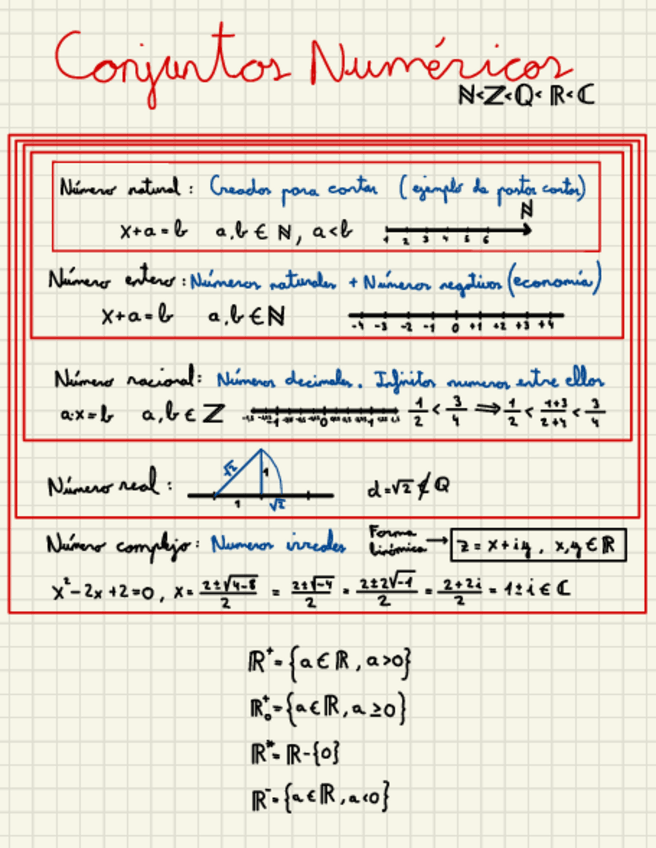 Conjuntos Numéricos
ℕ<ℤ<ℚ<ℝ<ℂ
Número natural: Creados para contar (ejemplo de pastor contar)
x+a=b a,b ∈ ℕ, a<b ℕ
1 2 3 4 5 6
Número entero: Números naturales + Números negativos (economía)
x+a=b a,b ∈ ℕ
-4 -3 -2 -1 0 +1 +2 +3 +4
Número racional: Números decimales. Infinitos numeros entre ellos
a·x=b a,b ∈ ℤ 1/2 < 3/4 ⟹ 1/2 < 1+3/2+4 < 3/4
Número real: √2 1 1 √2 d=√2 ∉ ℚ
Número complejo: Numeros irreales Forma binómica → z = x+iy, x,y ∈ ℝ
x²-2x+2=0, x= 2±√4-8/2 = 2±√-4/2 = 2±2√-1/2 = 2±2i/2 = 1±i ∈ ℂ
ℝ⁺={a∈ℝ, a>0}
ℝ₀⁺={a∈ℝ, a≥0}
ℝ*=ℝ-{0}
ℝ⁻={a∈ℝ, a<0}